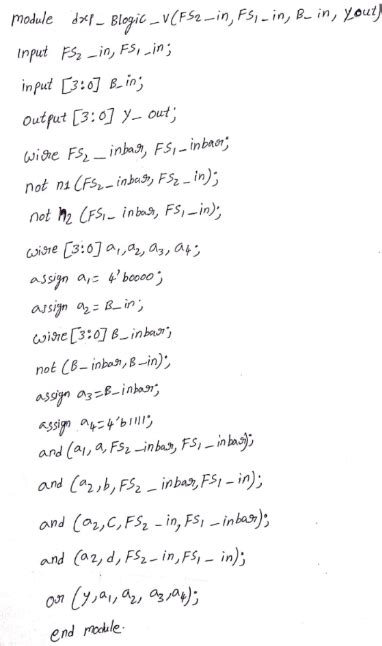 module dxp_Blogic_V(FS2_in, FS1_in, B_in, Yout)
Input FS2_in, FS1_in;
input [3:0] B_in;
output [3:0] Y_out;
wire FS2_inbar, FS1_inbar;
not n1 (FS2_inbar, FS2_in);
not n2 (FS1_inbar, FS1_in);
wire [3:0] a1, a2, a3, a4;
assign a1 = 4'b0000;
assign a2 = B_in;
wire [3:0] B_inbar;
not (B_inbar, B_in);
assign a3 = B_inbar;
assign a4 = 4'b1111;
and (a1, a, FS2_inbar, FS1_inbar);
and (a2, b, FS2_inbar, FS1_in);
and (a2, C, FS2_in, FS1_inbar);
and (a2, d, FS2_in, FS1_in);
or (y, a1, a2, a3, a4);
end module.